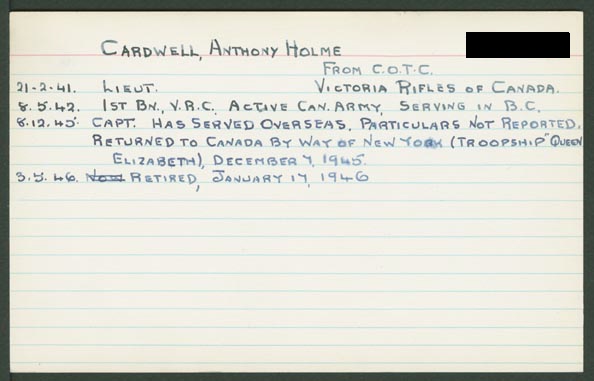 CARDWELL, ANTHONY HOLME
FROM C.O.T.C.
21-2-41. LIEUT. VICTORIA RIFLES OF CANADA.
8.5.42. 1ST BN., V.R.C. ACTIVE CAN. ARMY, SERVING IN B.C.
8.12.45. CAPT. HAS SERVED OVERSEAS, PARTICULARS NOT REPORTED,
RETURNED TO CANADA BY WAY OF NEW YORK (TROOPSHIP "QUEEN
ELIZABETH), DECEMBER 7, 1945.
3.5.46. RETIRED, JANUARY 17, 1946